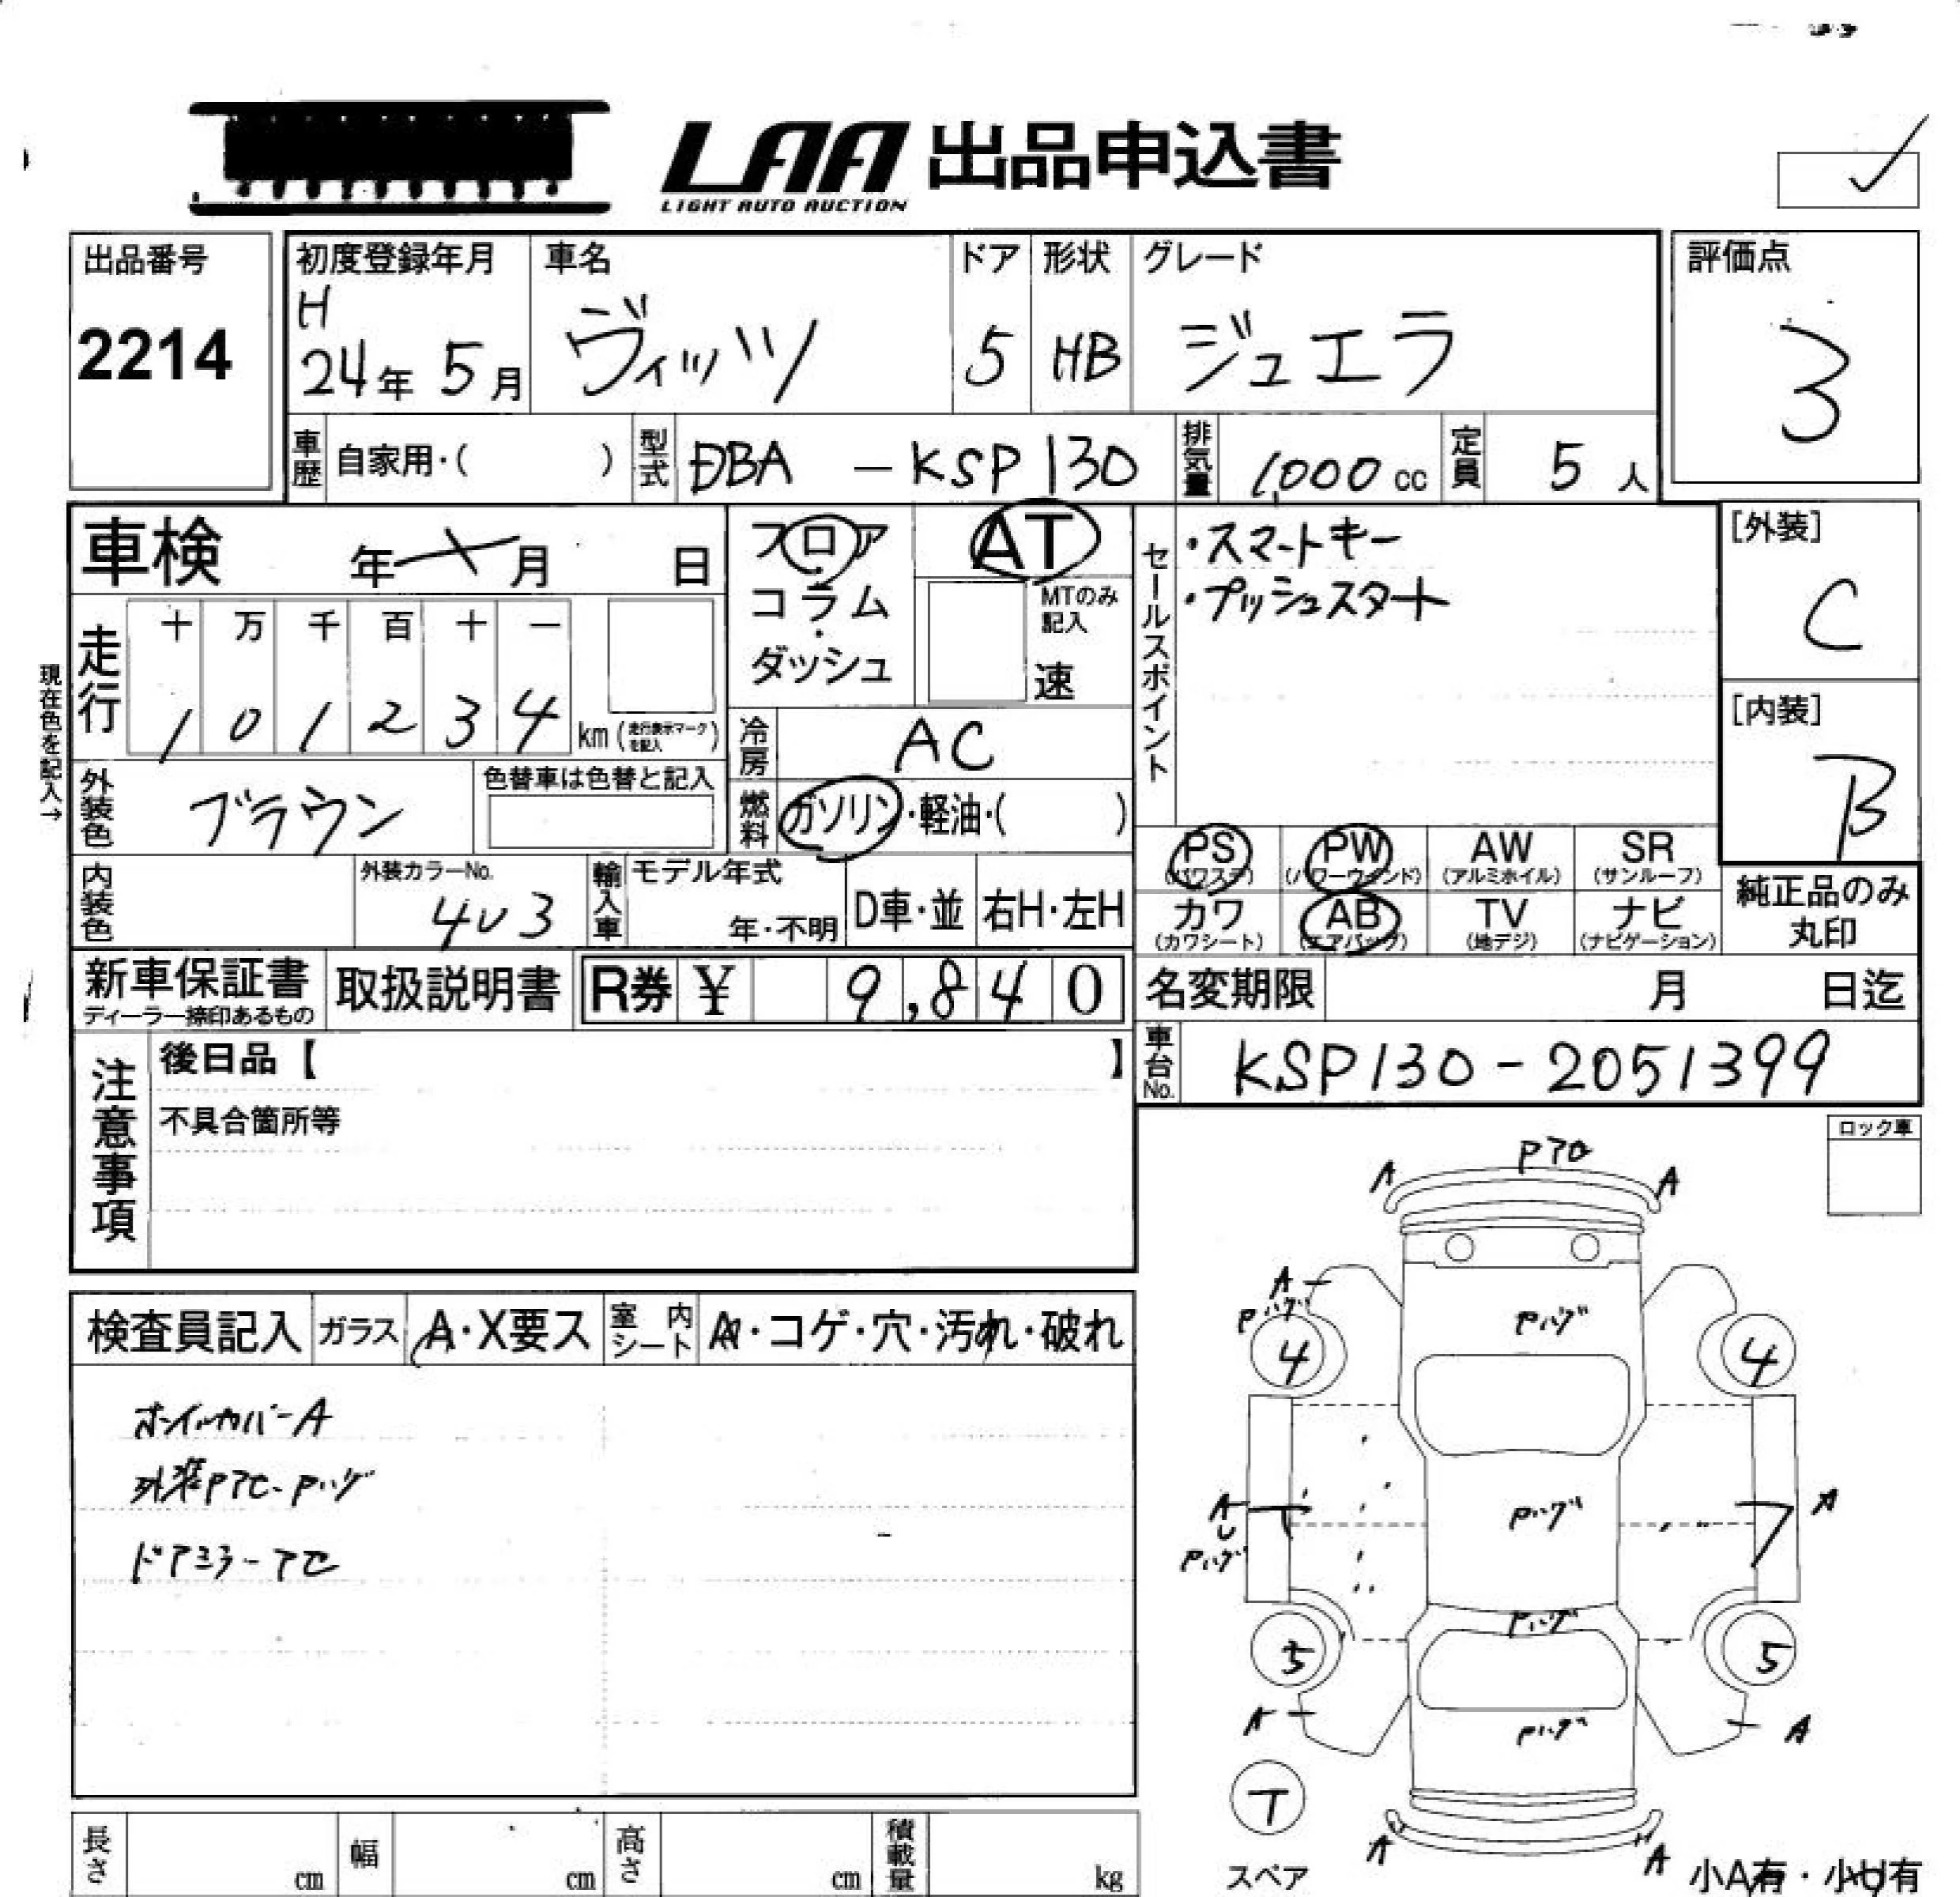 LAA 出品申込書
LIGHT AUTO AUCTION
出品番号
2214
初度登録年月
H
24年 5月
車名
ヴィッツ
ドア
5
形状
HB
グレード
ジュエラ
評価点
3
車歴 自家用・( )
型式 DBA - KSP130
排気量 1,000 cc
定員 5 人
車検 年 月 日
走行
十 万 千 百 十 一
1 0 1 2 3 4 km (走行表示マークを記入)
現在色を記入→
外装色 ブラウン
色替車は色替と記入
内装色
外装カラーNo.
4V3
フロア
・
コラム
・
ダッシュ
AT
MTのみ
記入
速
冷房 AC
燃料 ガソリン・軽油・( )
輸入車
モデル年式
年・不明
D車・並
右H・左H
セールスポイント
・スマートキー
・プッシュスタート
[外装]
C
[内装]
B
PS
(パワステ)
PW
(パワーウィンド)
AW
(アルミホイル)
SR
(サンルーフ)
カワ
(カワシート)
AB
(エアバック)
TV
(地デジ)
ナビ
(ナビゲーション)
純正品のみ
丸印
新車保証書
ディーラー捺印あるもの
取扱説明書
R券 ¥ 9,840
名変期限 月 日迄
車台No. KSP130-2051399
注意事項
後日品【 】
不具合箇所等
ロック車
検査員記入
ガラス
A・X要ス
室内シート
A・コゲ・穴・汚れ・破れ
ホイルカバーA
外装Pアセ・Pハゲ
ドアミラーアセ
Pアセ
A
A
A
Pハゲ
4
Pハゲ
4
A
Pハゲ
Pハゲ
A
Pハゲ
5
5
A
Pハゲ
A
T
スペア
A
A
小A有・小U有
長さ cm
幅 cm
高さ cm
積載量 kg